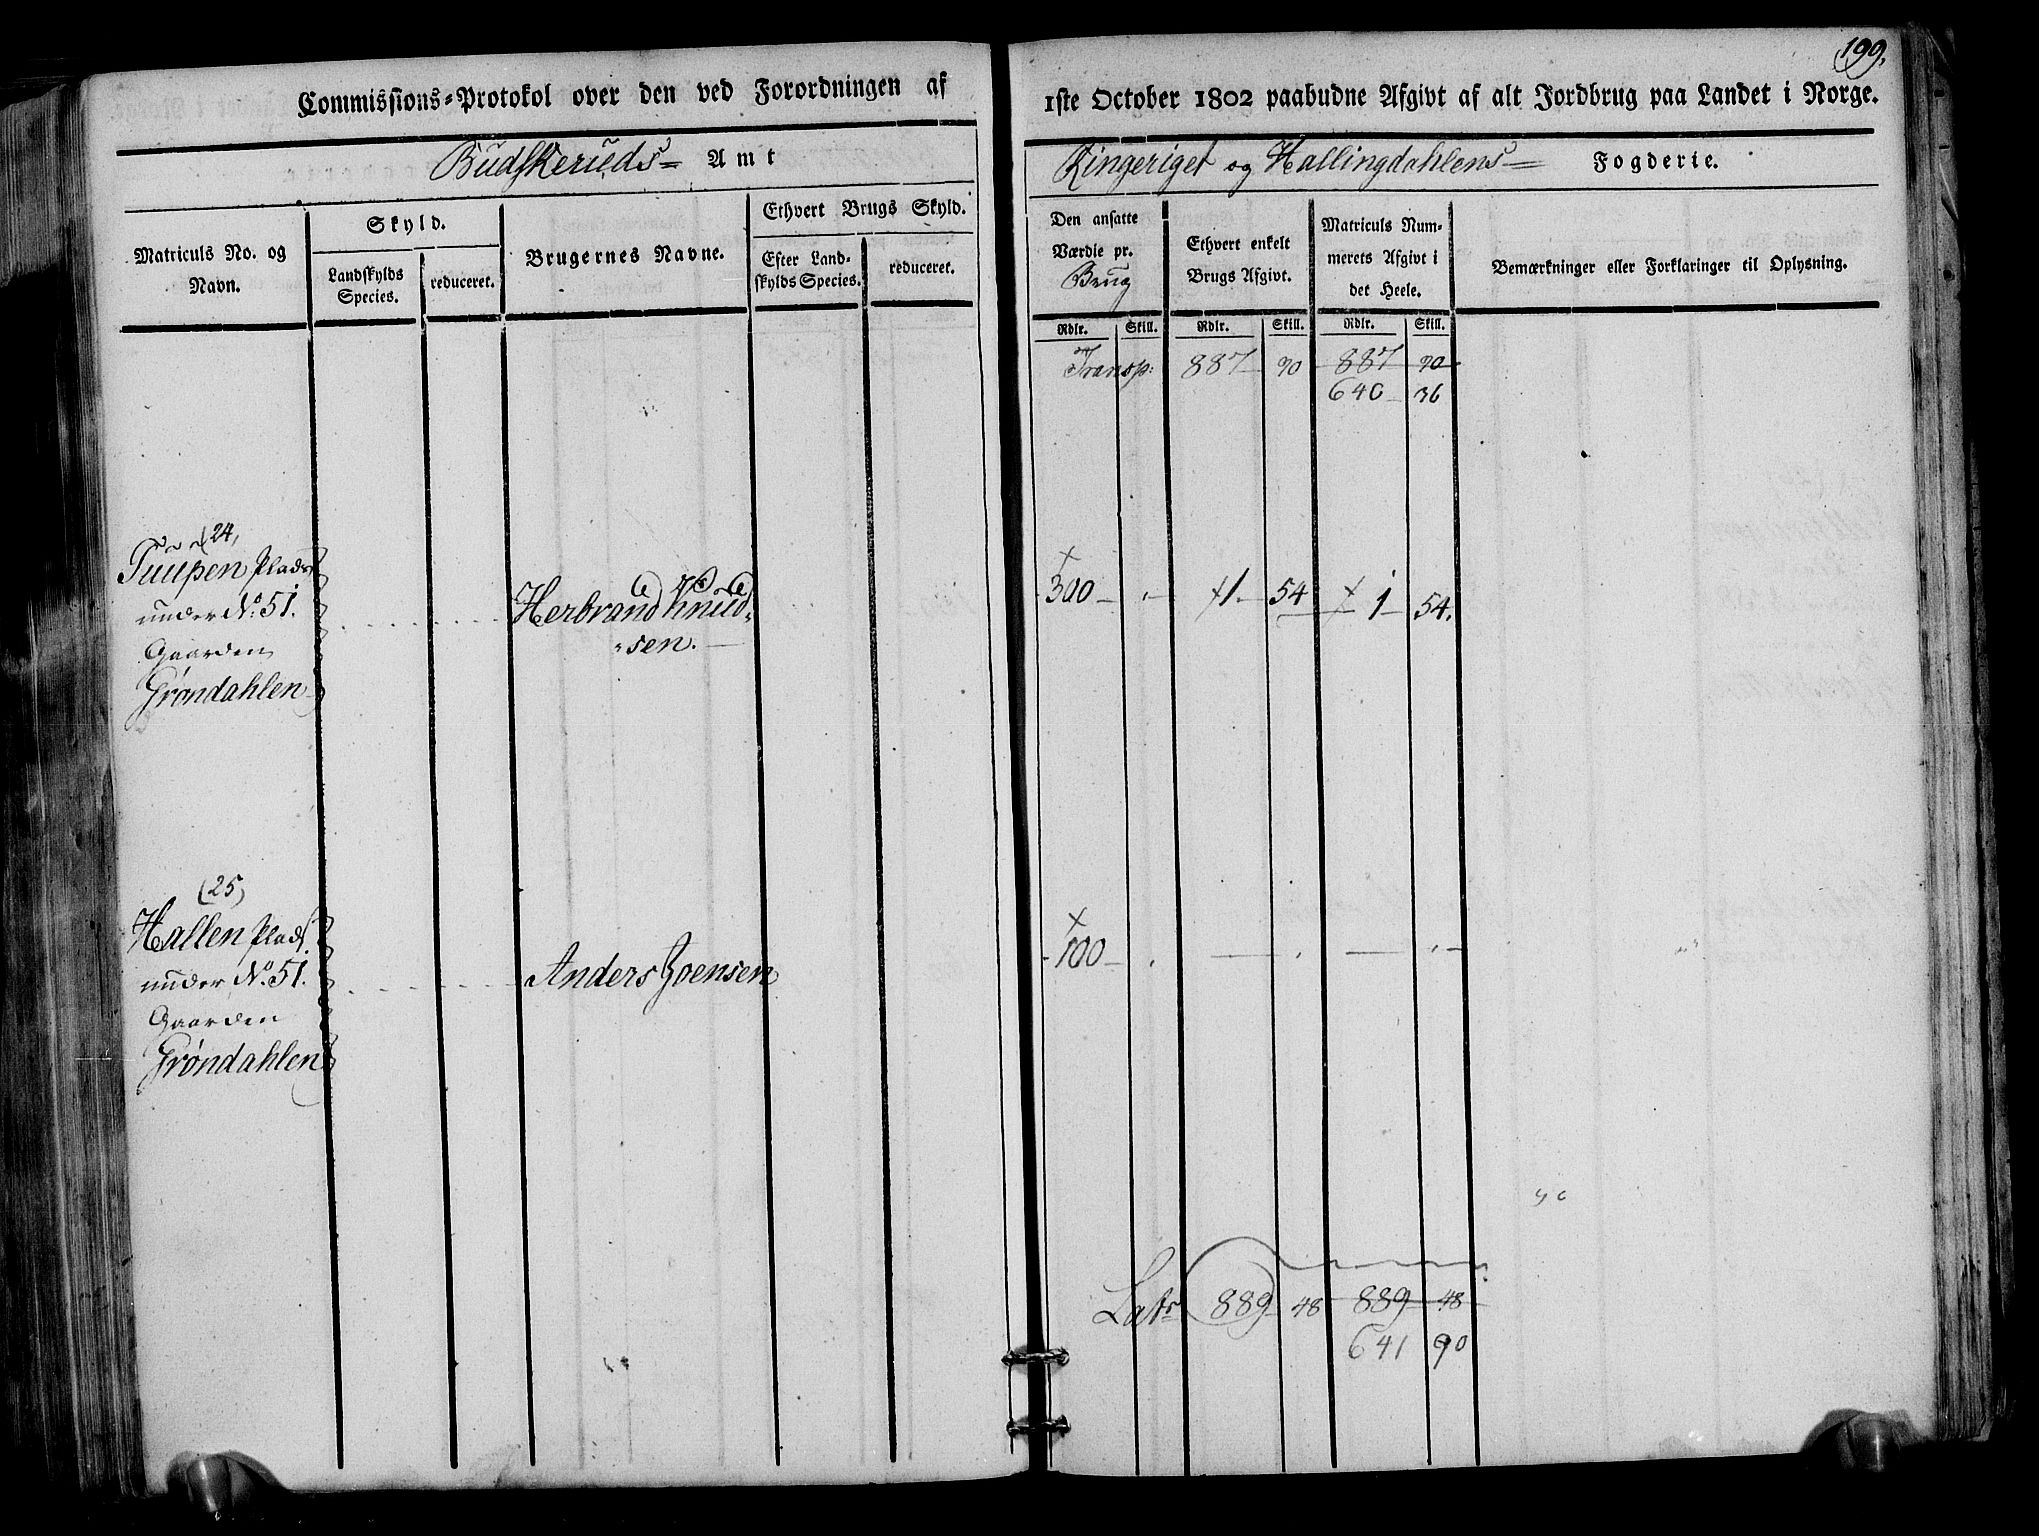 199.
Commissions-Protokol over den ved Forordningen af 1ste October 1802 paabudne Afgivt af alt Jordbrug paa Landet i Norge.
Budskeruds= Amt
Ringeriget og Hallingdahlens= Fogderie.
Matriculs No. og Navn.
Skyld.
Landskylds Species.
reduceret.
Brugernes Navne.
Ethvert Brugs Skyld.
Efter Landskylds Species.
reduceret.
Den ansatte Værdie pr. Brug
Ethvert enkelt Brugs Afgivt.
Matriculs Nummerets Afgivt i det Heele.
Bemærkninger eller Forklaringer til Oplysning.
Rdlr. Skill. Rdlr. Skill. Rdlr. Skill.
Transp: 887 90 887 90
640 36
24,
Tuupen Plads
under No. 51.
Gaarden
Grøndahlen
Herbrand Knud-
sen.
300 1 54 1 54.
(25)
Hallen Plads
under No. 51.
Gaarden
Grøndahlen
Anders Joensen
100
Lats 889 48 889 48
641 90